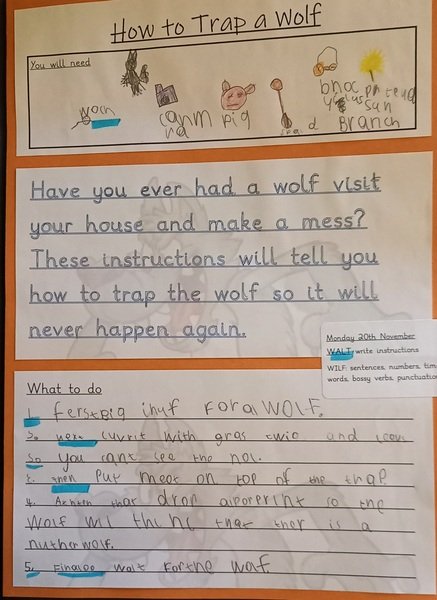 How to Trap a Wolf
You will need
canm pig bnoc pretend
ra yulus sun
Branch
Have you ever had a wolf visit
your house and make a mess?
These instructions will tell you
how to trap the wolf so it will
never happen again.
Monday 20th November
WALT: write instructions
WILF: sentences, numbers, tim
words, bossy verbs, punctuatio
What to do
1. ferst Big inuf For a WOLF.
next cuvrit with gras and
So you cant see the hol.
then Put meat on top of the trap
4. that drop so the
Wolf wil that ther is a
nuther wolf.
5. wait For the